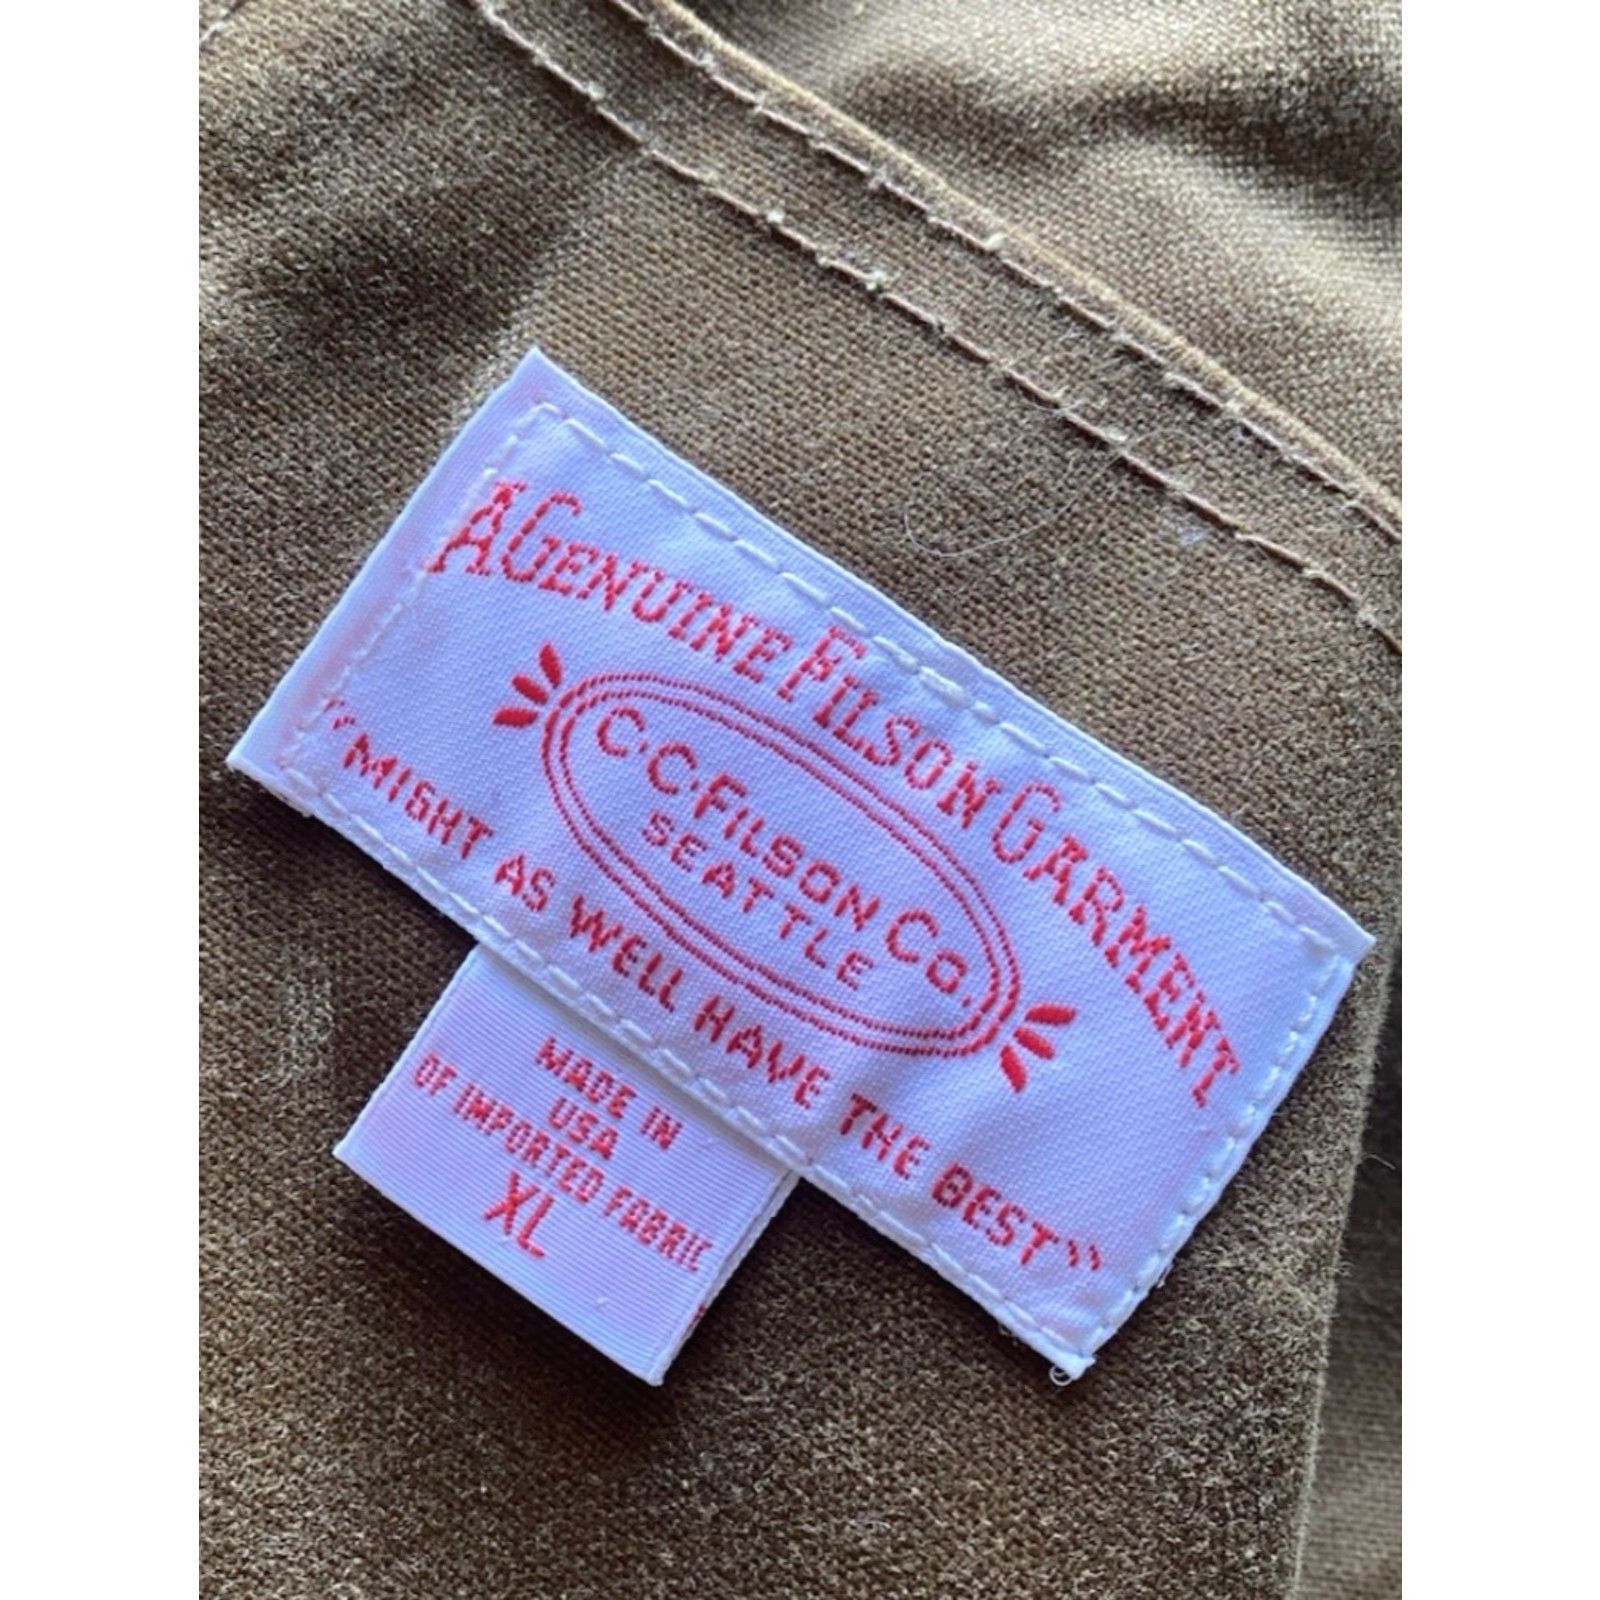 A GENUINE FILSON GARMENT
C.C. FILSON CO.
SEATTLE
"MIGHT AS WELL HAVE THE BEST"
MADE IN
USA
OF IMPORTED FABRIC
XL